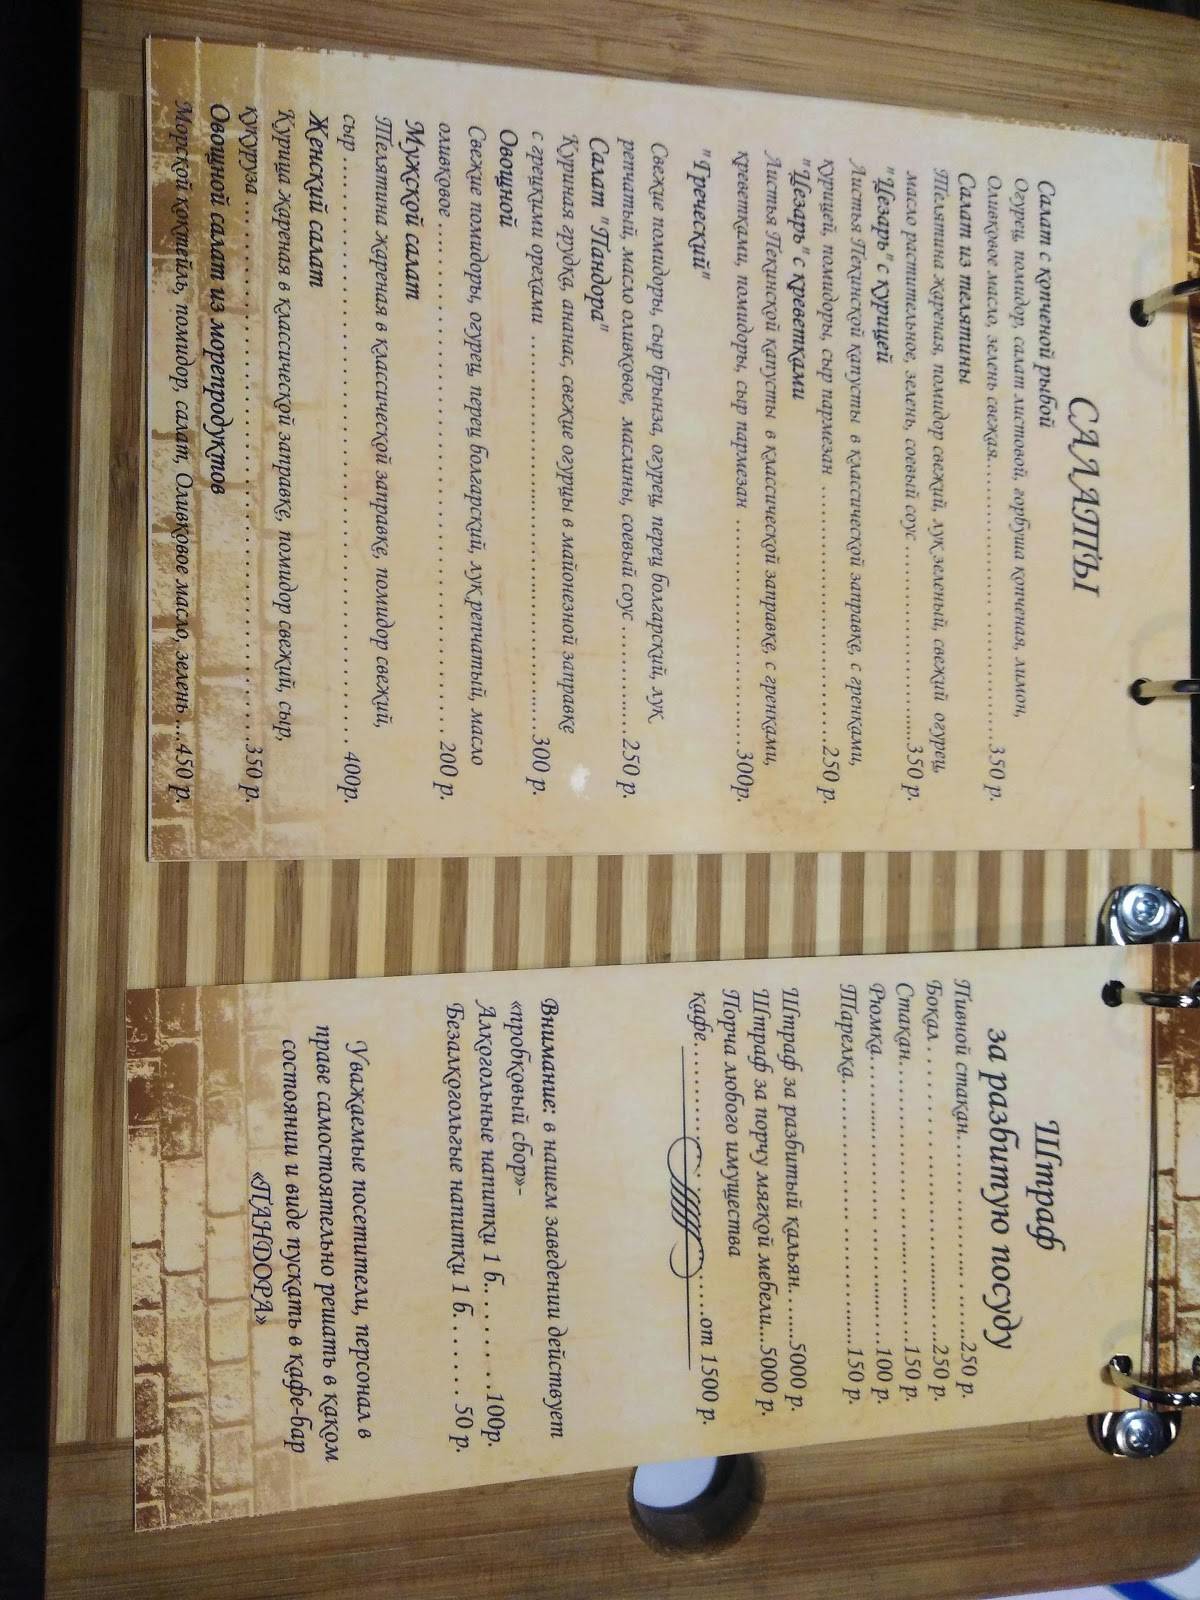 САЛАТЫ
Салат с копченой рыбой
Огурец, помидор, салат листовой, горбуша копченая, лимон,
Оливковое масло, зелень свежая.....................350 р.
Салат из телятины
Телятина жареная, помидор свежий, лук зеленый, свежий огурец,
масло растительное, зелень, соевый соус .....................350 р.
"Цезарь" с курицей
Листья Пекинской капусты в классической заправке, с гренками,
курицей, помидоры, сыр пармезан .....................250 р.
"Цезарь" с креветками
Листья Пекинской капусты в классической заправке, с гренками,
креветками, помидоры, сыр пармезан .....................300р.
"Греческий"
Свежие помидоры, сыр брынза, огурец, перец болгарский, лук
репчатый, масло оливковое, маслины, соевый соус ............250 р.
Салат "Пандора"
Куриная грудка, ананас, свежие огурцы в майонезной заправке
с грецкими орехами .....................300 р.
Овощной
Свежие помидоры, огурец, перец болгарский, лук репчатый, масло
оливковое .....................200 р.
Мужской салат
Телятина жареная в классической заправке, помидор свежий,
сыр .....................400р.
Женский салат
Курица жареная в классической заправке, помидор свежий, сыр,
кукуруза .....................350 р.
Овощной салат из морепродуктов
Морской коктейль, помидор, салат, Оливковое масло, зелень ....450 р.
Штраф
за разбитую посуду
Пивной стакан.....................250 р.
Бокал.....................250 р.
Стакан.....................150 р.
Рюмка.....................100 р.
Тарелка.....................150 р.
Штраф за разбитый кальян.......5000 р.
Штраф за порчу мягкой мебели...5000 р.
Порча любого имущества
кафе.....................от 1500 р.
Внимание: в нашем заведении действует
«пробковый сбор»-
Алкогольные напитки 1 б........100р.
Безалкогольгые напитки 1 б...... 50 р.
Уважаемые посетители, персонал в
праве самостоятельно решать в каком
состоянии и виде пускать в кафе-бар
«ПАНДОРА»